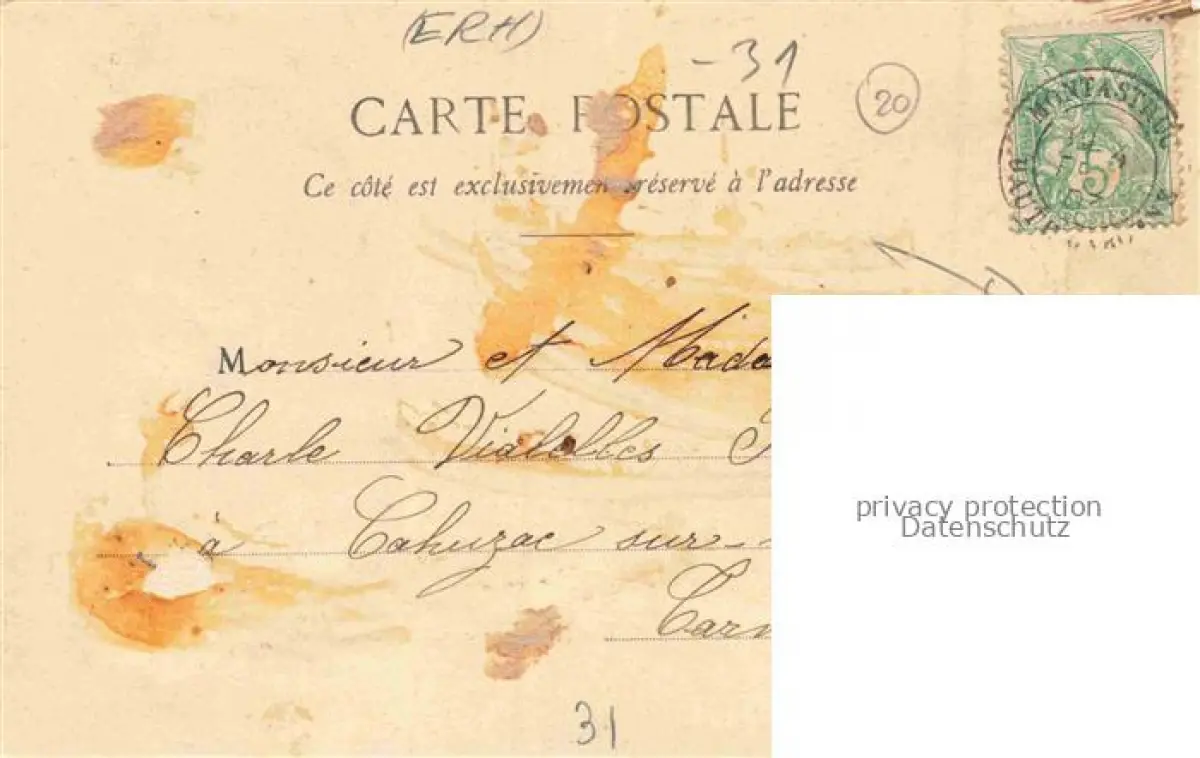 (ERH)
-31
CARTE POSTALE
20
Ce côté est exclusivemen réservé à l'adresse
MONTASTRUC
5
Monsieur et Mada
Charle Vialelles
à Cahuzac sur-
Tarn
privacy protection
Datenschutz
31